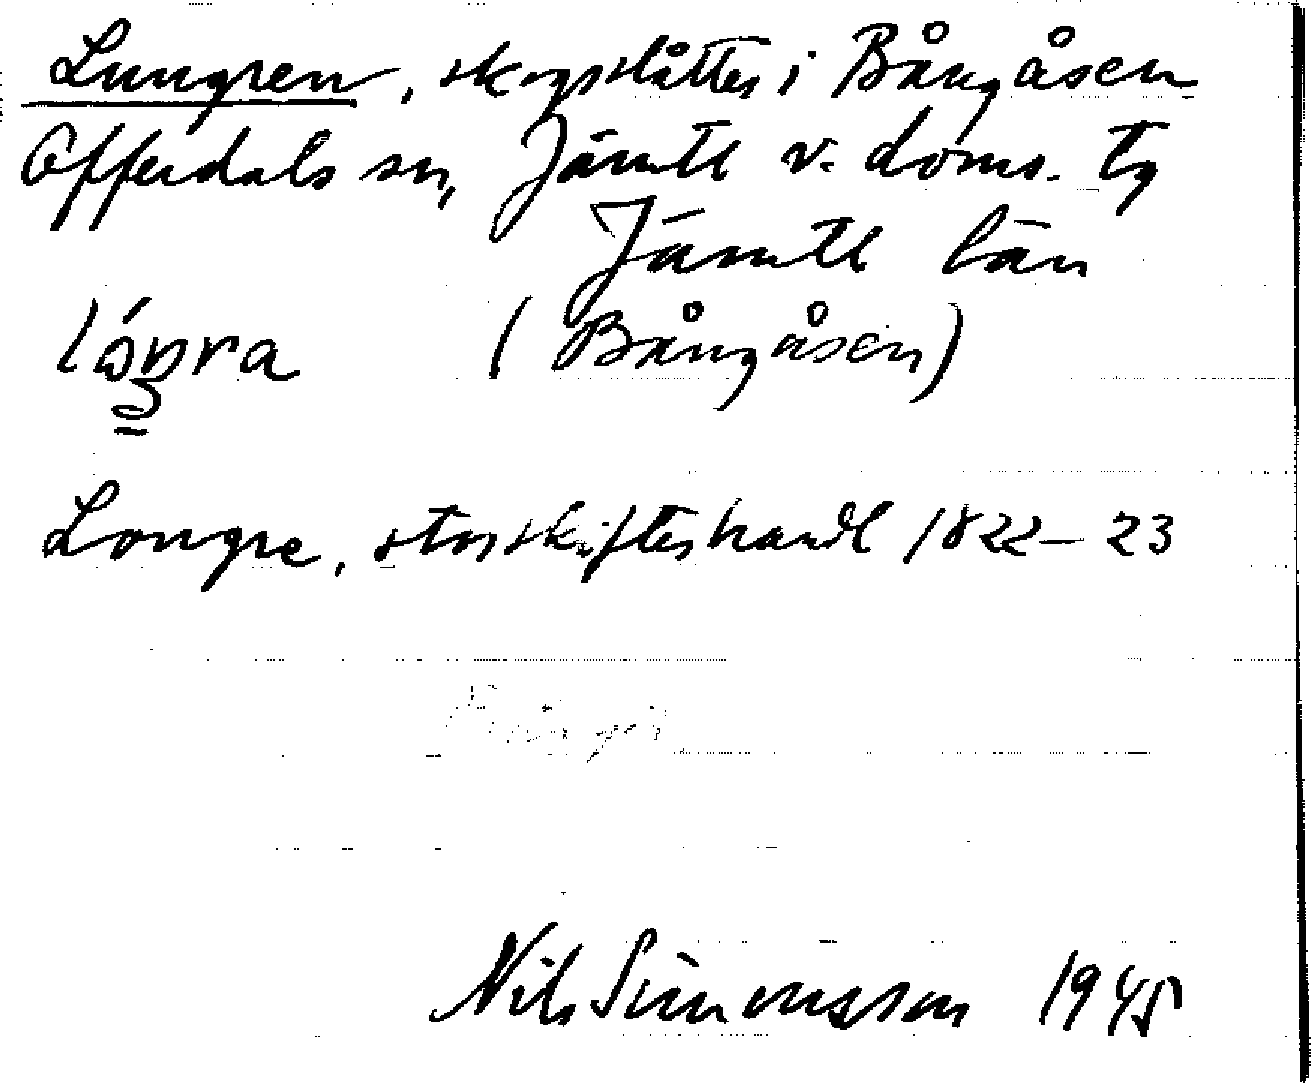 Lungren, skogsslåtter i Bångåsen
Offerdals sn, Jämtl v. doms. tg
Jämtl län
lóŋra (Bångåsen)
Longre, storskifteshandl 1822–23
Nils Simonsson 1945